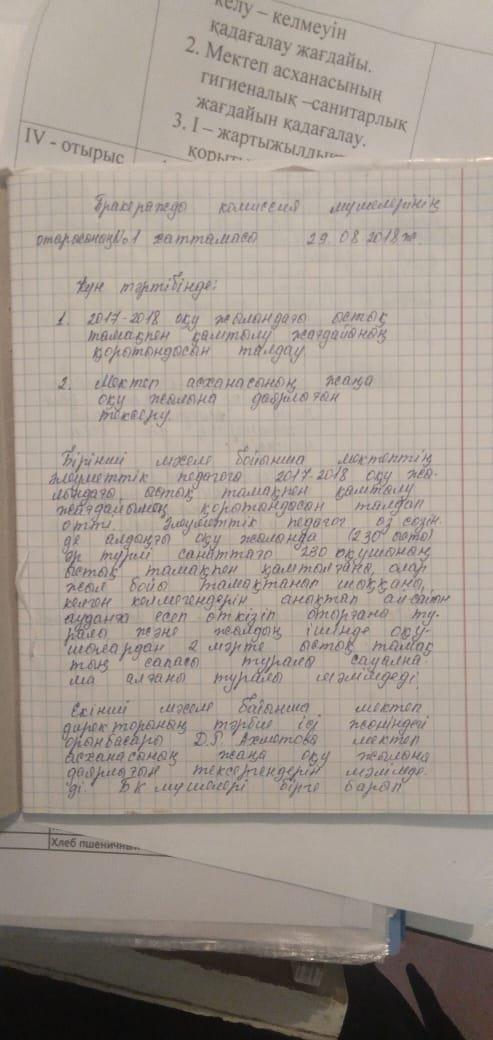 келу – келмеуін
қадағалау жағдайы.
2. Мектеп асханасының
гигиеналық –санитарлық
жағдайын қадағалау.
3. І – жартыжылдық
қорыты
IV - отырыс
Бракераждо комиссия мүшелерінің
отырысының №1 хаттамасы 29.08.2018ж.
Күн тәртібінде:
1. 2017-2018 оқу жылындағы ыстық
тамақпен қамтылу жағдайының
қорытындысын талдау.
2. Мектеп асханасының жаңа
оқу жылына даярлығын
тексеру.
Бірінші мәселе бойынша мектептің
әлеуметтік педагогы 2017-2018 оқу жы-
лындағы ыстық тамақпен қамтылу
жағдайының қорытындысын талдап
өтті. Әлеуметтік педагог өз сөзін-
де алдыңғы оқу жылында (230 осты)
әр түрлі санаттағы 230 оқушының
ыстық тамақпен қамтылғаны, олар
жыл бойы тамақтанып шыққаны,
келген келмегендерін анықтап ай сайын
ауданға есеп өткізіп отырғаны ту-
ралы және жылдың ішінде оқу-
шылардан 2 мәрте ыстық тамақ
тың сапасы туралы сауална-
ма алғаны туралы мәлімдеді.
Екінші мәселе бойынша мектеп
директорының тәрбие ісі жөніндегі
орынбасары Д.Г. Ахметова мектеп
асханасының жаңа оқу жылына
даярлығын тексергендерін мәлімде-
ді. БК мүшелері бірге барып
Хлеб пшеничный